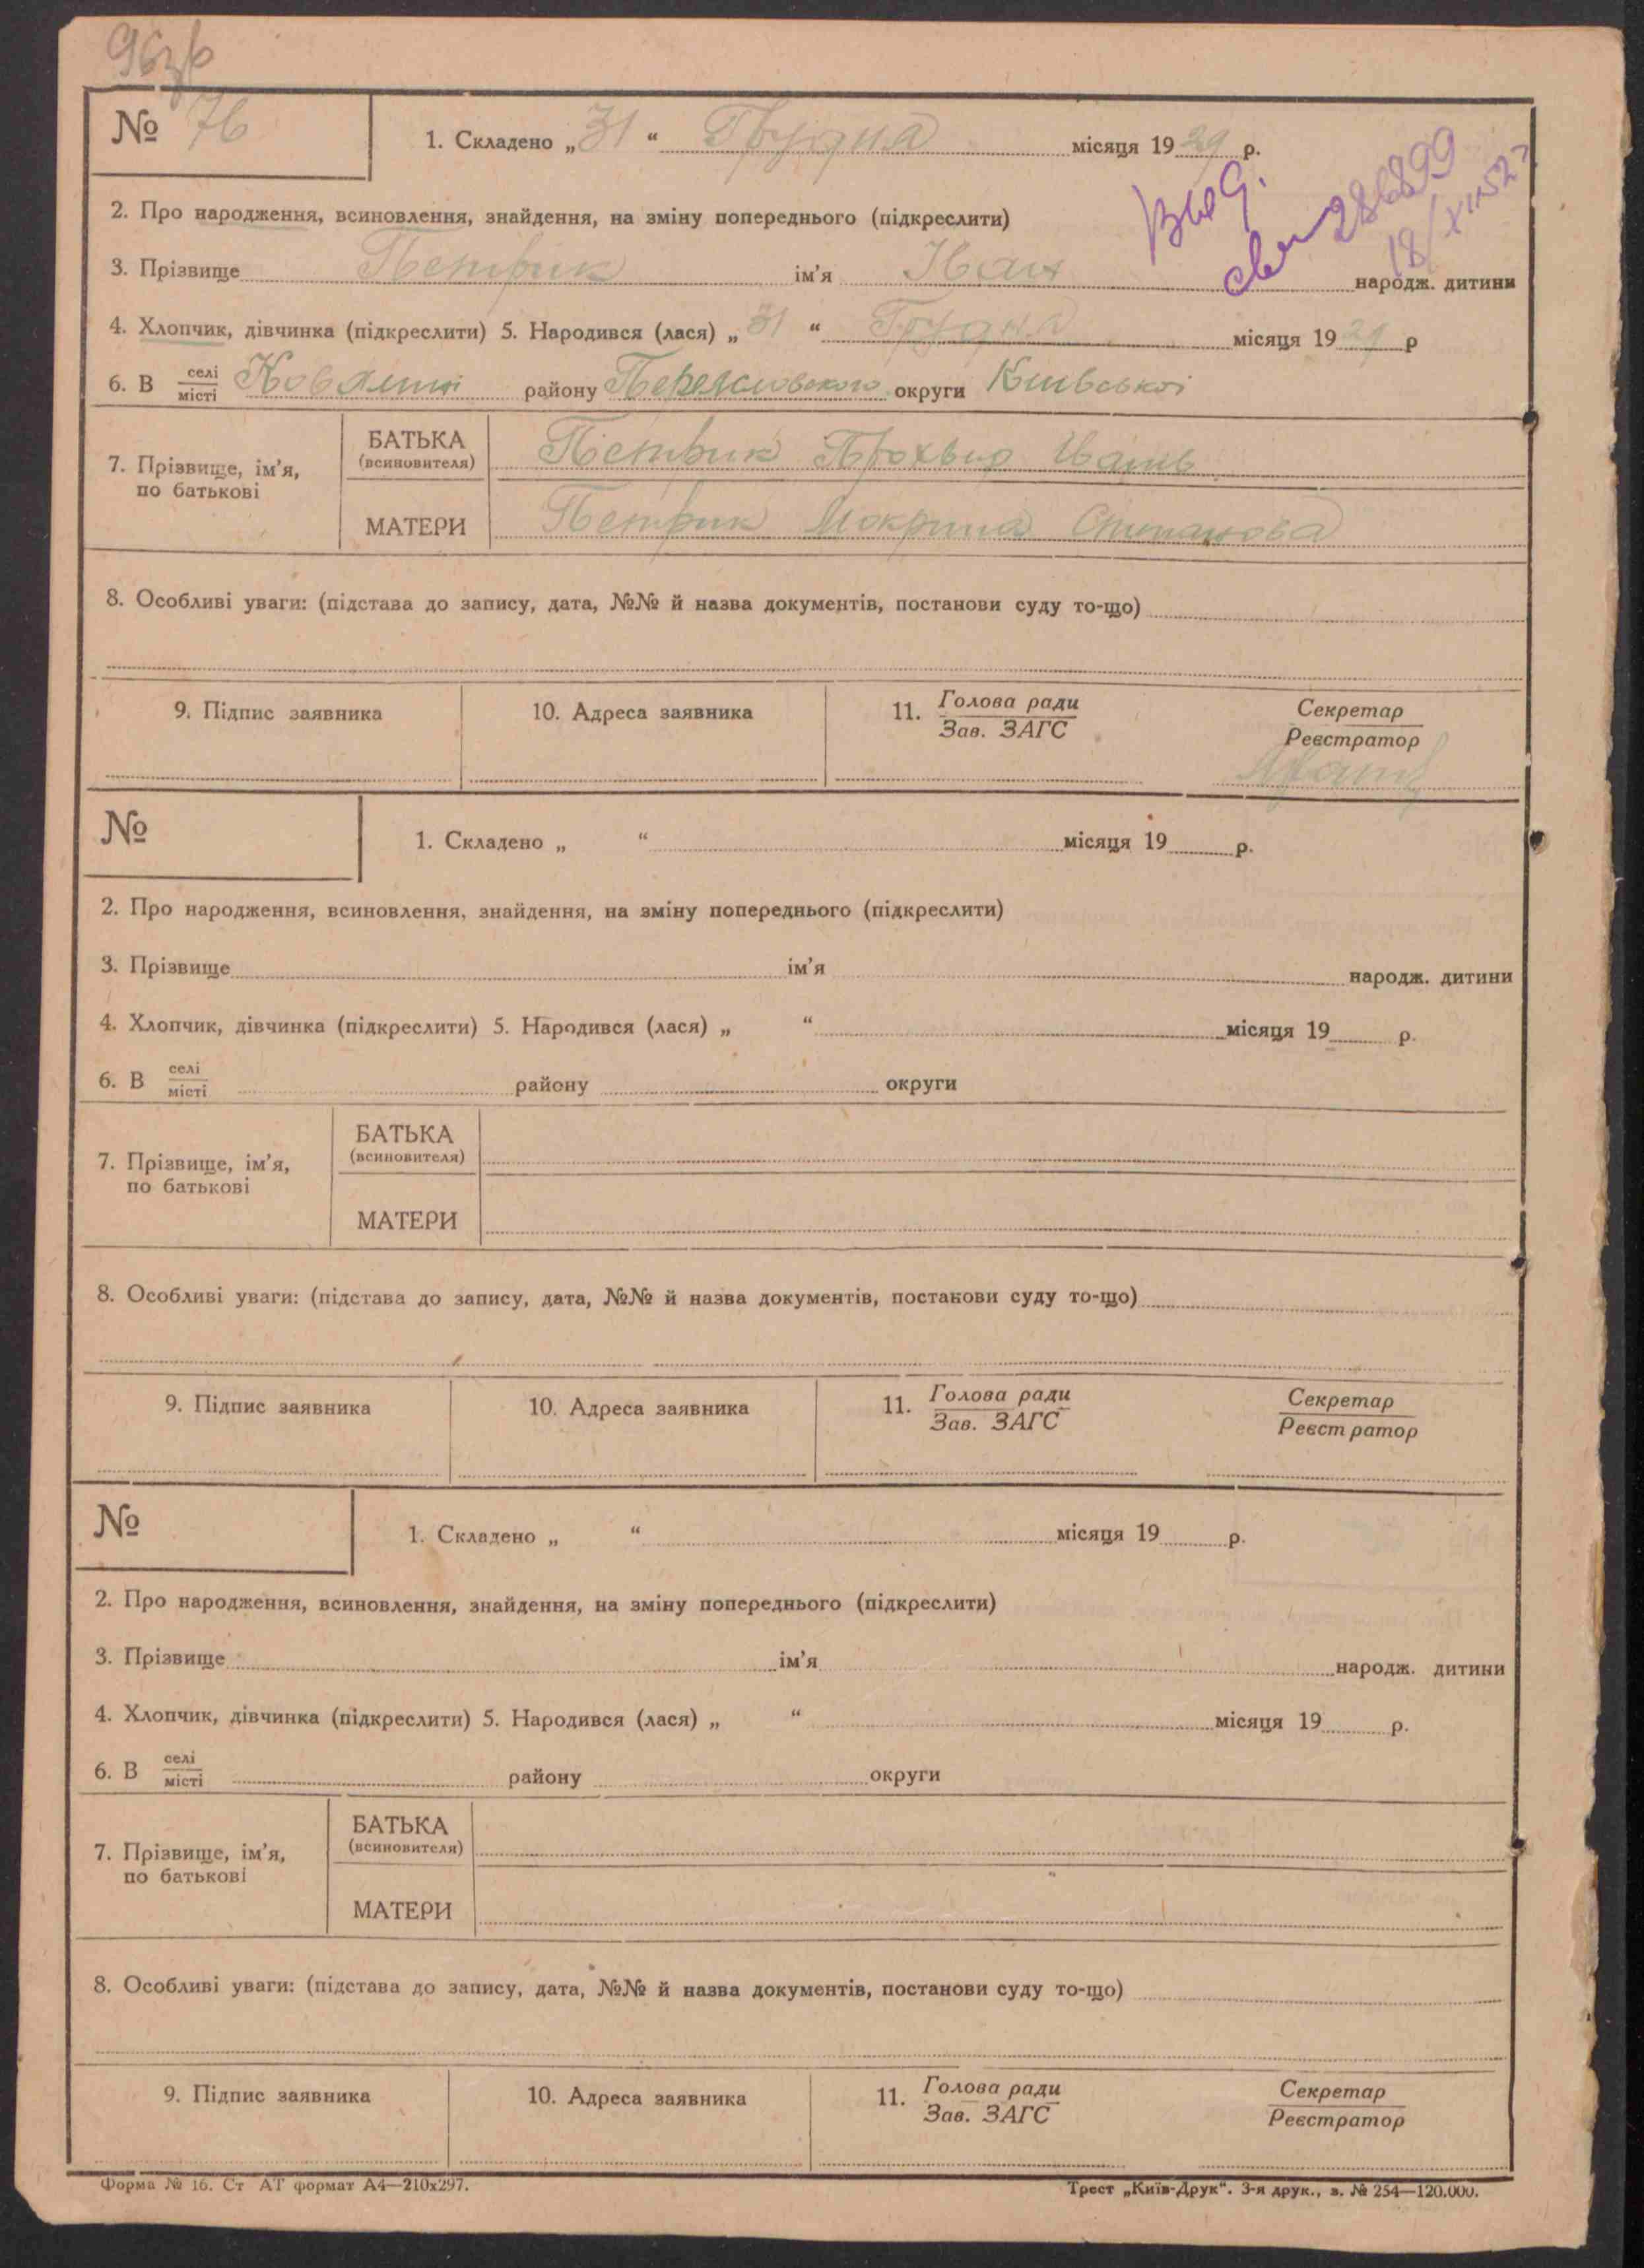 963б
№ 76
1. Складено „ 31 “ Грудня місяця 19 29 р.
Выд.
2. Про народження, всиновлення, знайдення, на зміну попереднього (підкреслити)
18/XII 52 г
3. Прізвище Петрик ім'я Іван народж. дитини
4. Хлопчик, дівчинка (підкреслити) 5. Народився (лася) „ 31 “ Грудня місяця 19 29 р
6. В селі місті Ковалині району округи Київської
7. Прізвище, ім'я, по батькові
БАТЬКА (всиновителя) Петрик Прохвид Іванів
МАТЕРИ Петрик Мокрина Степанова
8. Особливі уваги: (підстава до запису, дата, №№ й назва документів, постанови суду то-що)
9. Підпис заявника 10. Адреса заявника 11. Голова ради Зав. ЗАГС Секретар Реєстратор
№
1. Складено „ “ місяця 19 р.
2. Про народження, всиновлення, знайдення, на зміну попереднього (підкреслити)
3. Прізвище ім'я народж. дитини
4. Хлопчик, дівчинка (підкреслити) 5. Народився (лася) „ “ місяця 19 р.
6. В селі місті району округи
7. Прізвище, ім'я, по батькові
БАТЬКА (всиновителя)
МАТЕРИ
8. Особливі уваги: (підстава до запису, дата, №№ й назва документів, постанови суду то-що)
9. Підпис заявника 10. Адреса заявника 11. Голова ради Зав. ЗАГС Секретар Реєстратор
№
1. Складено „ “ місяця 19 р.
2. Про народження, всиновлення, знайдення, на зміну попереднього (підкреслити)
3. Прізвище ім'я народж. дитини
4. Хлопчик, дівчинка (підкреслити) 5. Народився (лася) „ “ місяця 19 р.
6. В селі місті району округи
7. Прізвище, ім'я, по батькові
БАТЬКА (всиновителя)
МАТЕРИ
8. Особливі уваги: (підстава до запису, дата, №№ й назва документів, постанови суду то-що)
9. Підпис заявника 10. Адреса заявника 11. Голова ради Зав. ЗАГС Секретар Реєстратор
Форма № 16. Ст АТ формат А4—210х297. Трест „Київ-Друк“. 3-я друк., з. № 254—120.000.